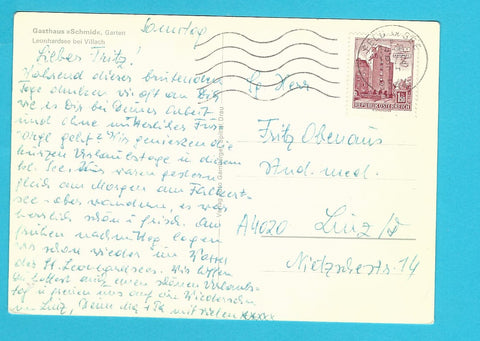 Gasthaus »Schmid«, Garten
Leonhardsee bei Villach
Samstag
Lieber Fritz!
Während dieser brütenden
Tage denken wir oft an Dich
wie es Dir bei Deiner Arbeit
und ohne mütterlicher Für-
sorge geht? Wir genießen die
kurzen Urlaubstage u. diesen
See. Wir waren gestern
gleich am Morgen am Falkert-
see - aber wandern, es war
herrlich schön u. frisch. Am
frühen Nachmittag lagen
wir schon wieder im Wasser
des St. Leonhardsees. Wir hoffen
Du hattest auch einen schönen Urlaubs-
tag u. freuen uns auf ein Wiedersehen
in Linz, Deine mit vielen xxxxx
REPUBLIK ÖSTERREICH
Herr
Fritz Obenaus
Stud. med.
A4020 Linz/D
Nietzschestr. 14